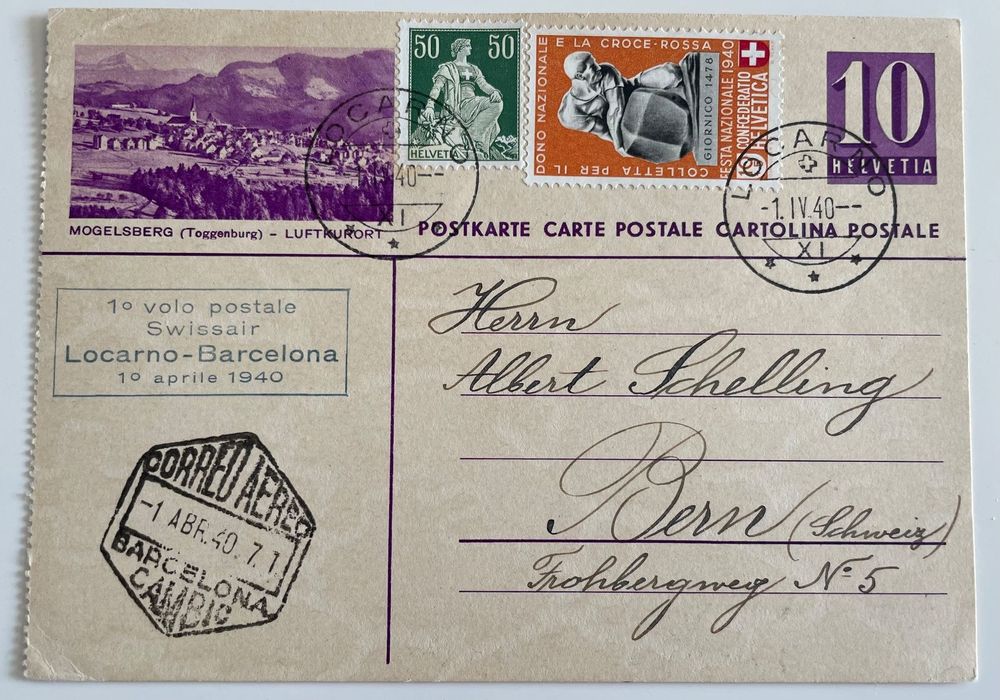 50 50
HELVETIA
DONO NAZIONALE E LA CROCE-ROSSA
COLLETTA PER IL
GIORNICO 1478
FESTA NAZIONALE 1940
5
HELVETICA
10
HELVETIA
LOCARNO
1.IV.40--
XI
LOCARNO
-1.IV.40--
XI
MOGELSBERG (Toggenburg) - LUFTKURORT
POSTKARTE CARTE POSTALE CARTOLINA POSTALE
1º volo postale
Swissair
Locarno-Barcelona
1º aprile 1940
CORREO AEREO
-1 ABR.40. 7.1
BARCELONA
CAMBIO
Herrn
Albert Schelling
Bern (Schweiz)
Frohbergweg Nº 5